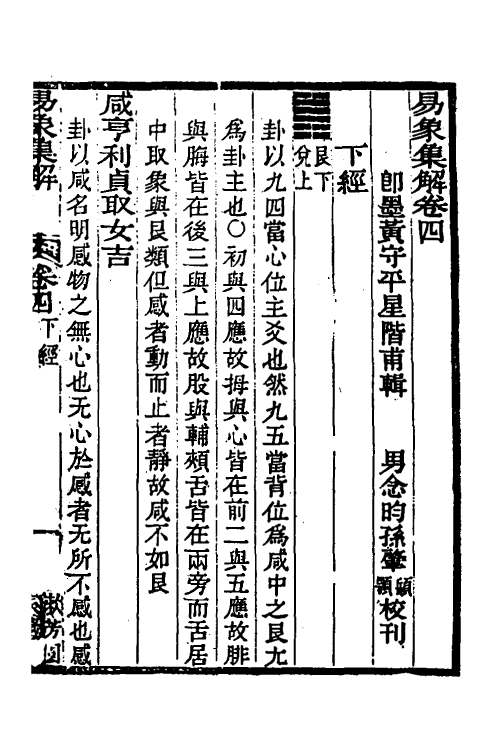 易象集解卷四
卽墨黃守平星階甫輯 男念昀孫肇顗領校刊
下經
艮下
兌上
卦以九四當心位主爻也然九五當背位爲咸中之艮尢
爲卦主也○初與四應故拇與心皆在前二與五應故腓
與脢皆在後三與上應故股與輔頰舌皆在兩旁而舌居
中取象與艮類但感者動而止者靜故咸不如艮
咸亨利貞取女吉
卦以咸名明感物之無心也无心於感者无所不感也感
易象集解 卷四 下經 一 漱芳園